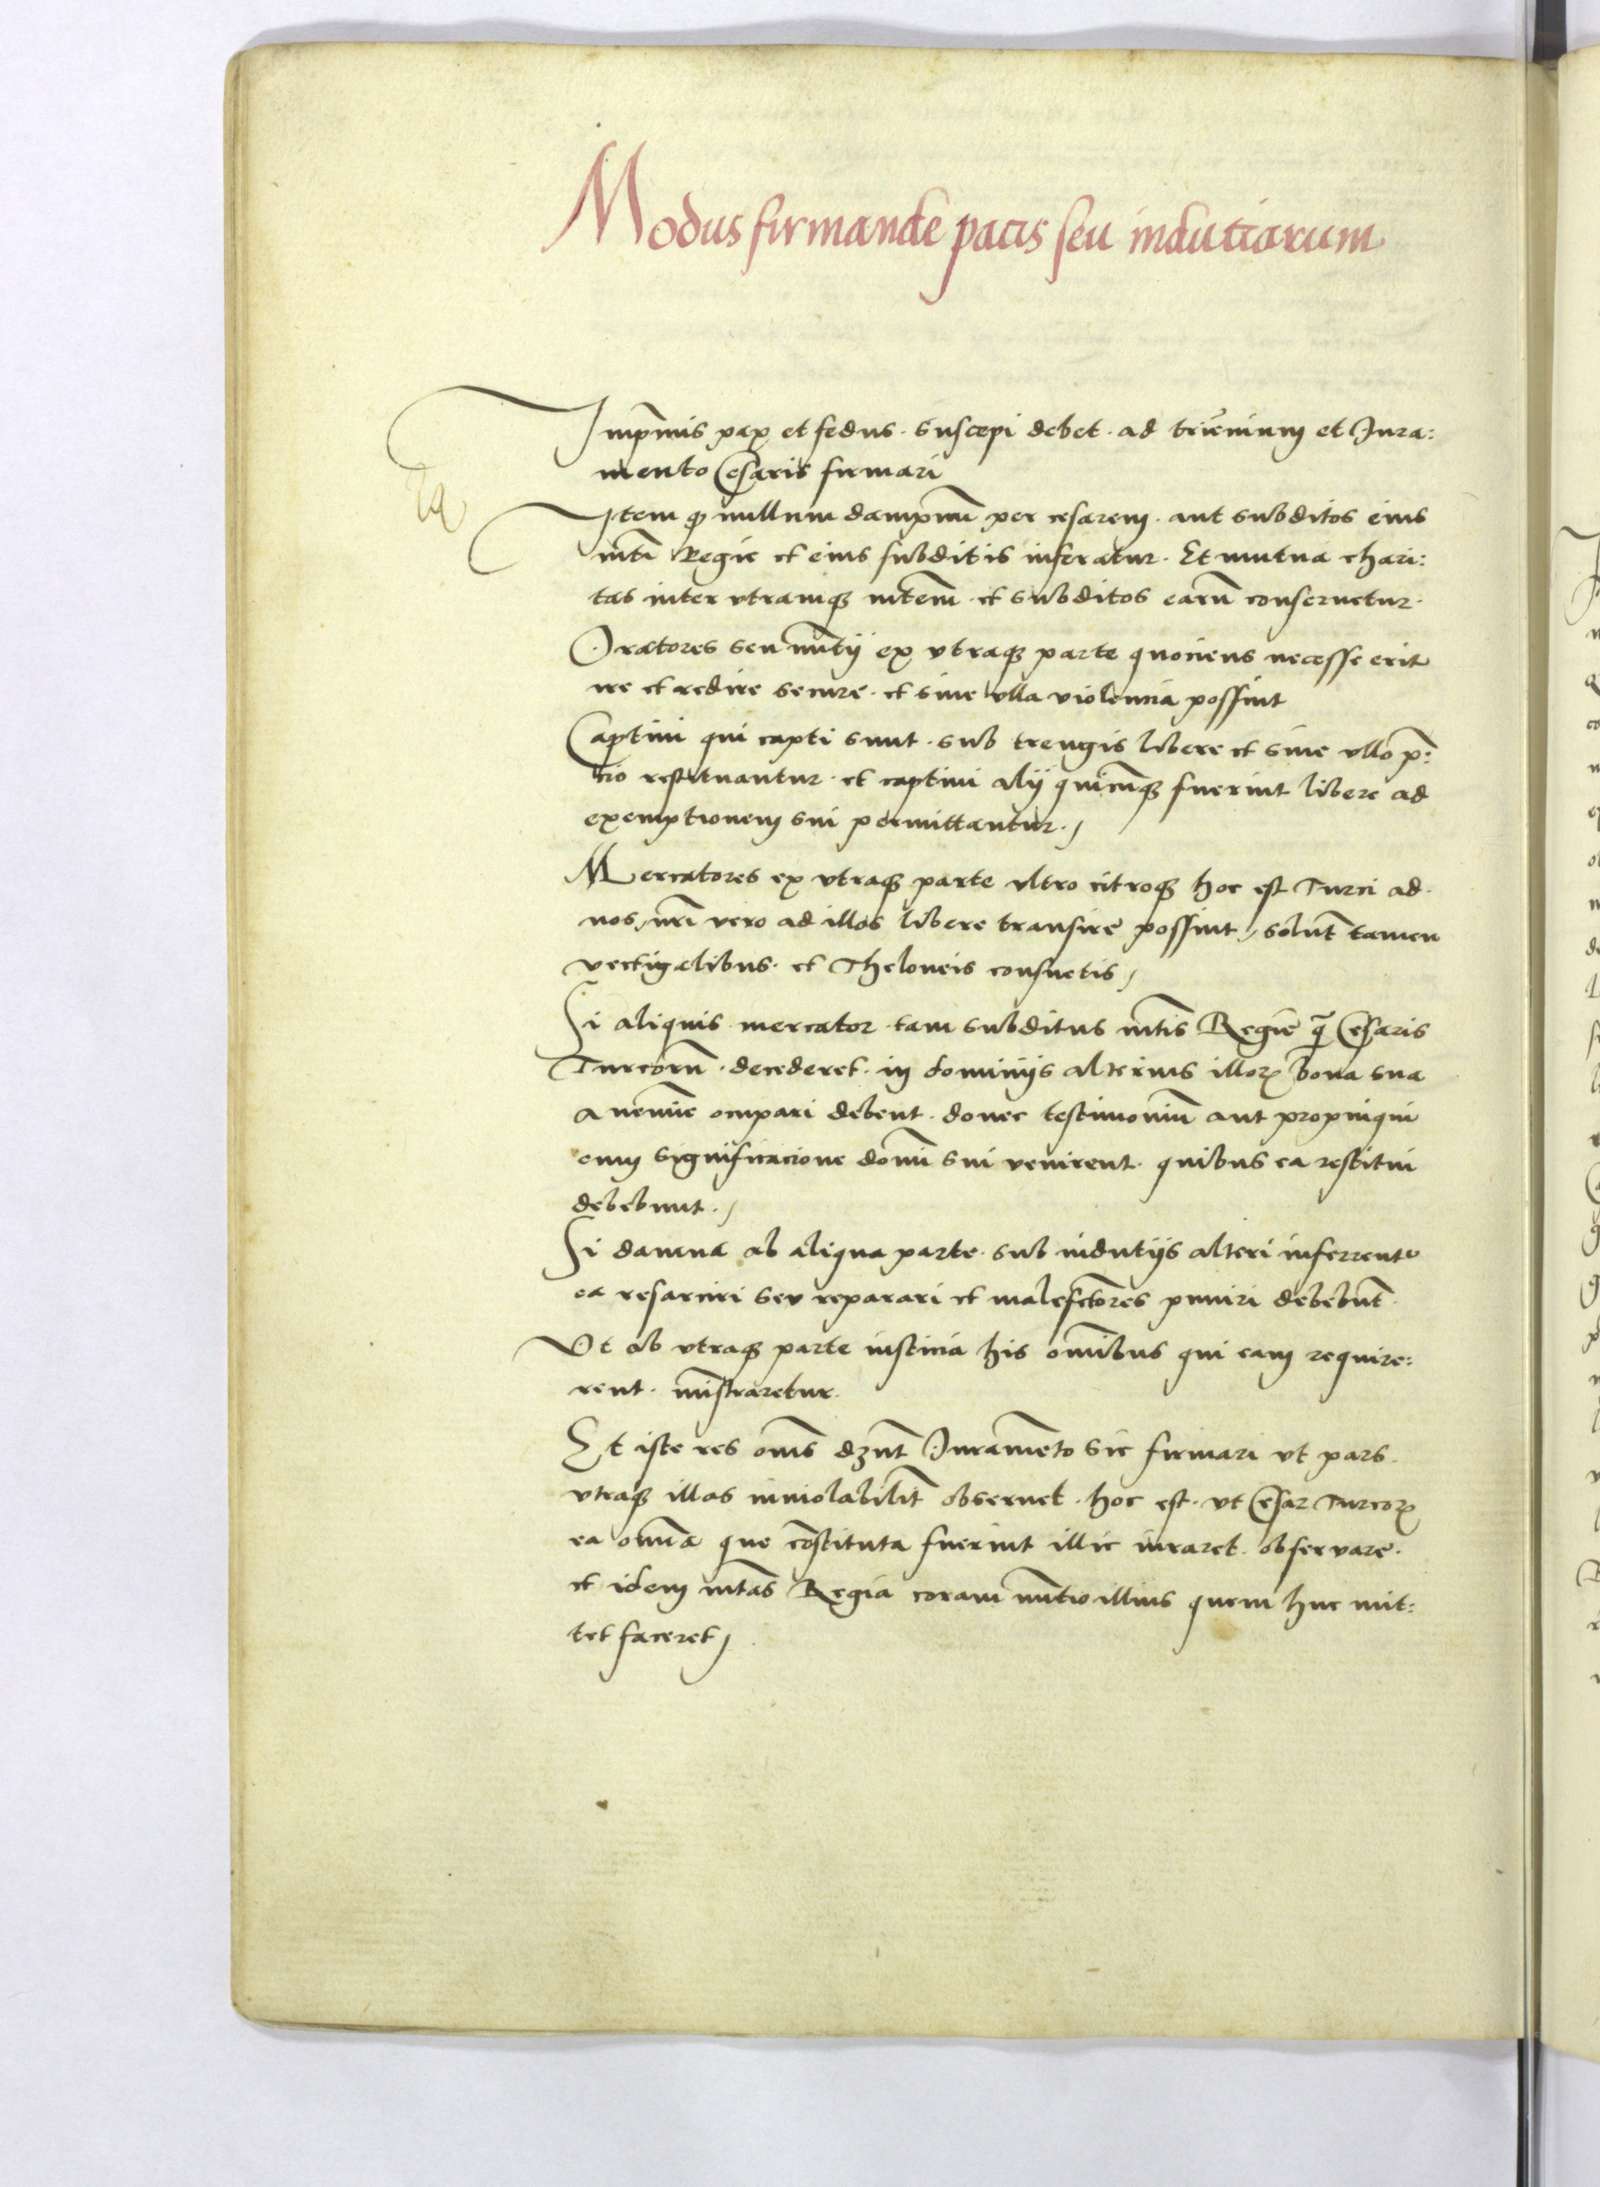 Modus firmande pacis seu indutiarum
Inp̄mis pax et fedus · suscepi debet · ad trieniium et Jura:
mento Cesaris firmari
Item ꝙ nullum dampnū per cesarem · aut subditos eius
mti Regie et eius subditis inferatur · Et mutua chari:
tas inter vtramqꝫ mtem̄ · et subditos earū conseruetur ·
Oratores seu nūtij ex vtraqꝫ parte quociens necesse erit
ire et redire secure · et sine vlla violencia possint
Captiui qui capti sunt · sub treugis libere et sine vllo p̄:
cio restituantur · et captiui alij quicūqꝫ fuerint libere ad
exemptionem sui permittantur · /
Mercatores ex vtraqꝫ parte vltro citroqꝫ hoc est Turci ad ·
nos, nr̄i vero ad illos libere transire possint, solut̄ tamen
vectigalibus · et Theloneis consuetis /
Si aliquis mercator tam subditus mt̄is Regie̅ q̄ Cesaris
Turcorū · decederet · in dominijs alterius illoꝝ bona sua
a nemīe ocupari debent · donec testimoniū aut propinqui
cum significacione domī sui venirent · quibus ea restitui
debebunt · /
Si damna ab aliqua parte · sub indutijs alteri inferrent̄
ea resarciri seu reparari et malefctōres puniri debebūt ·
Vt ab vtraqꝫ parte iusticia his om̄ibus qui eam require:
rent · mīstraretur ·
Et iste res om̄s dꝫnt̄ Juramēto sic firmari vt pars ·
vtraqꝫ illas inuiolabilit̄ obseruet · hoc est · vt Cesar Turcoꝝ
ea om̄ia que cōstituta fuerint illic iuraret · observare ·
et idem mt̄as Regia coram nūtio illius quem huc mit:
tet faceret /